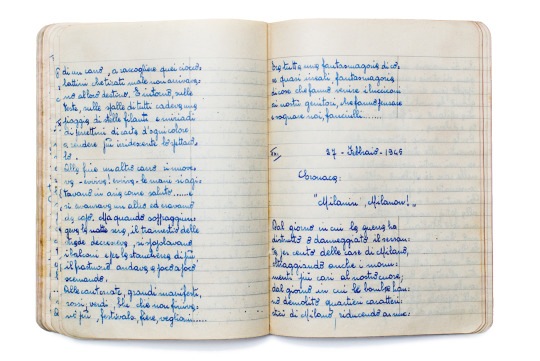 di un carro, a raccogliere quei ciocco=
lattini che tirati male non arrivava=
no al loro destino. E intorno, sulle
teste, sulle spalle di tutti cadeva una
pioggia di stelle filanti e miriadi
di pezzettini di carta d'ogni colore
a rendere più iridescente lo spettaco=
lo.
Alla fine un altro carro si muove
va - evviva! evviva - le mani si agi=
tavano in aria come saluto......e
si avanzava un altro ed eravamo
da capo. Ma quando sopraggiun=
geva la notte sera, il trametio delle
strade decresceva, si spopolavano
i balconi e per la stanchezza di più
il frastuono andava a poco a poco
scemando.
Alle cantonate, grandi manifesti,
rossi, verdi, blu che non finiva=
no più, festivals, fiere, veglioni.....
tutta una fantasmagoria di co=
se quasi irreali, fantasmagoria
di cose che fanno venire i lucciconi
ai nostri genitori, che fanno
e sognare noi, fanciulli.......
27 - Febbraio - 1945
Cronaca:
"Milanin, Milanon!"
Dal giorno in cui la guerra ha
distrutto o danneggiato il sessan=
ta per cento delle case di Milano,
oltraggiando anche i monu=
menti più cari al nostro cuore;
dal giorno in cui le bombe han=
no demolito quartieri caratteri=
stici di Milano riducendo